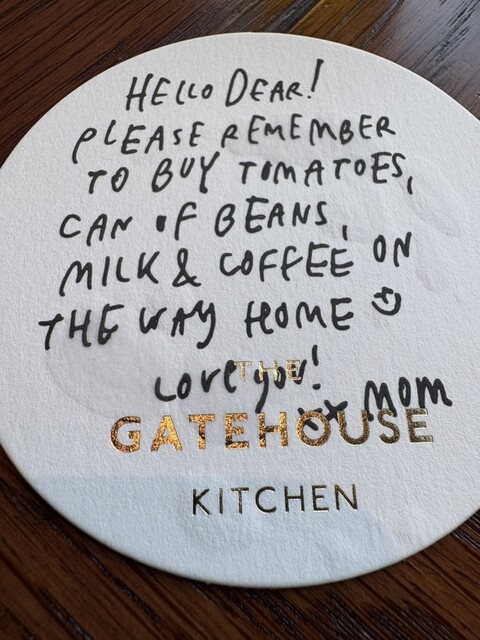 HELLO DEAR!
PLEASE REMEMBER
TO BUY TOMATOES,
CAN OF BEANS,
MILK & COFFEE ON
THE WAY HOME ☺
LOVE you!
xx MOM
THE
GATEHOUSE
KITCHEN